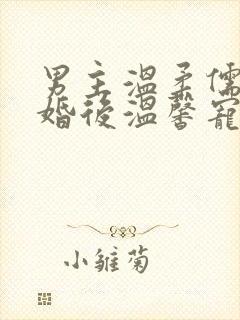 男主溫柔儒
婚後溫馨寵
小雛菊